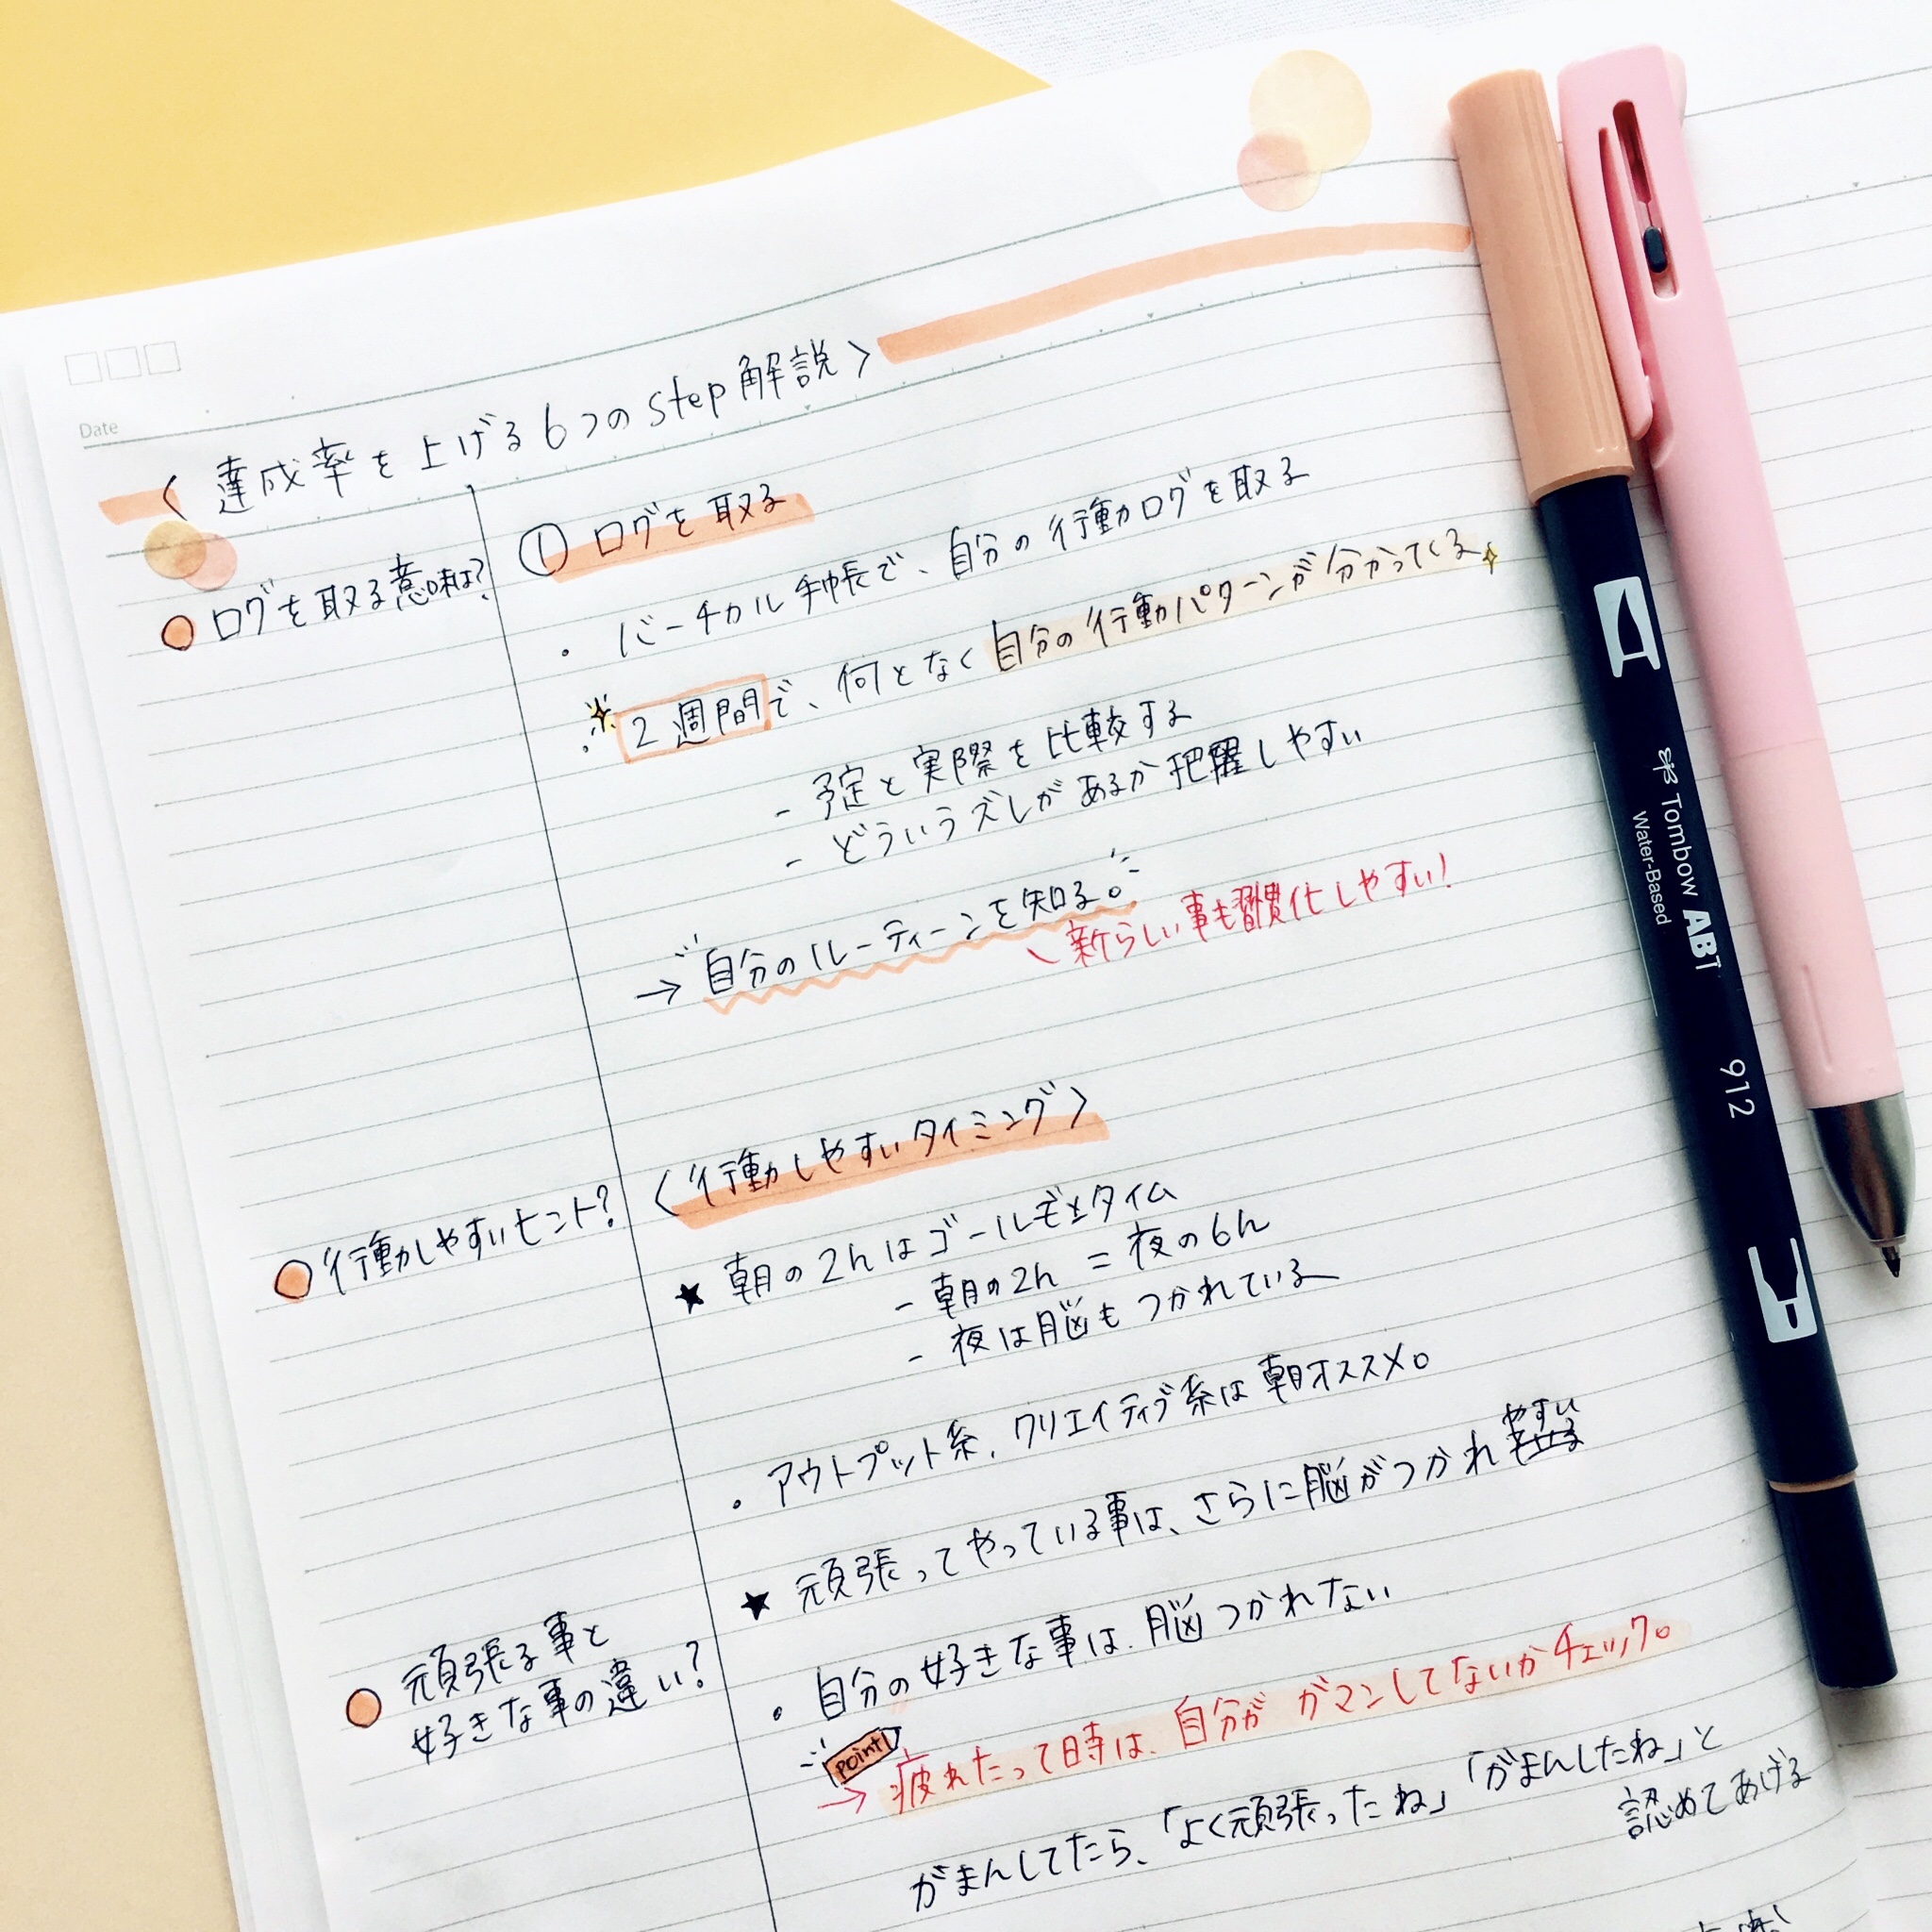 Date
〈達成率を上げる6つのstep解説〉
ログを取る意味は?
① ログを取る
・バーチカル手帳で、自分の行動ログを取る
・2週間で、何となく自分の行動パターンが分かってくる
- 予定と実際を比較する
- どういうズレがあるか把握しやすい
→ 自分のルーティーンを知る。
新らしい事も習慣化しやすい!
行動しやすいヒント?
〈行動しやすいタイミング〉
★ 朝の2hはゴールデンタイム
- 朝の2h = 夜の6h
- 夜は脳もつかれている
・アウトプット系、クリエイティブ系は朝オススメ。
頑張る事と
好きな事の違い?
★ 頑張ってやっている事は、さらに脳がつかれやすい
・自分の好きな事は、脳つかれない
point!
→ 疲れたって時は、自分がガマンしてないかチェック。
がまんしてたら、「よく頑張ったね」「がまんしたね」と
認めてあげる
Tombow ABT
Water-Based
912